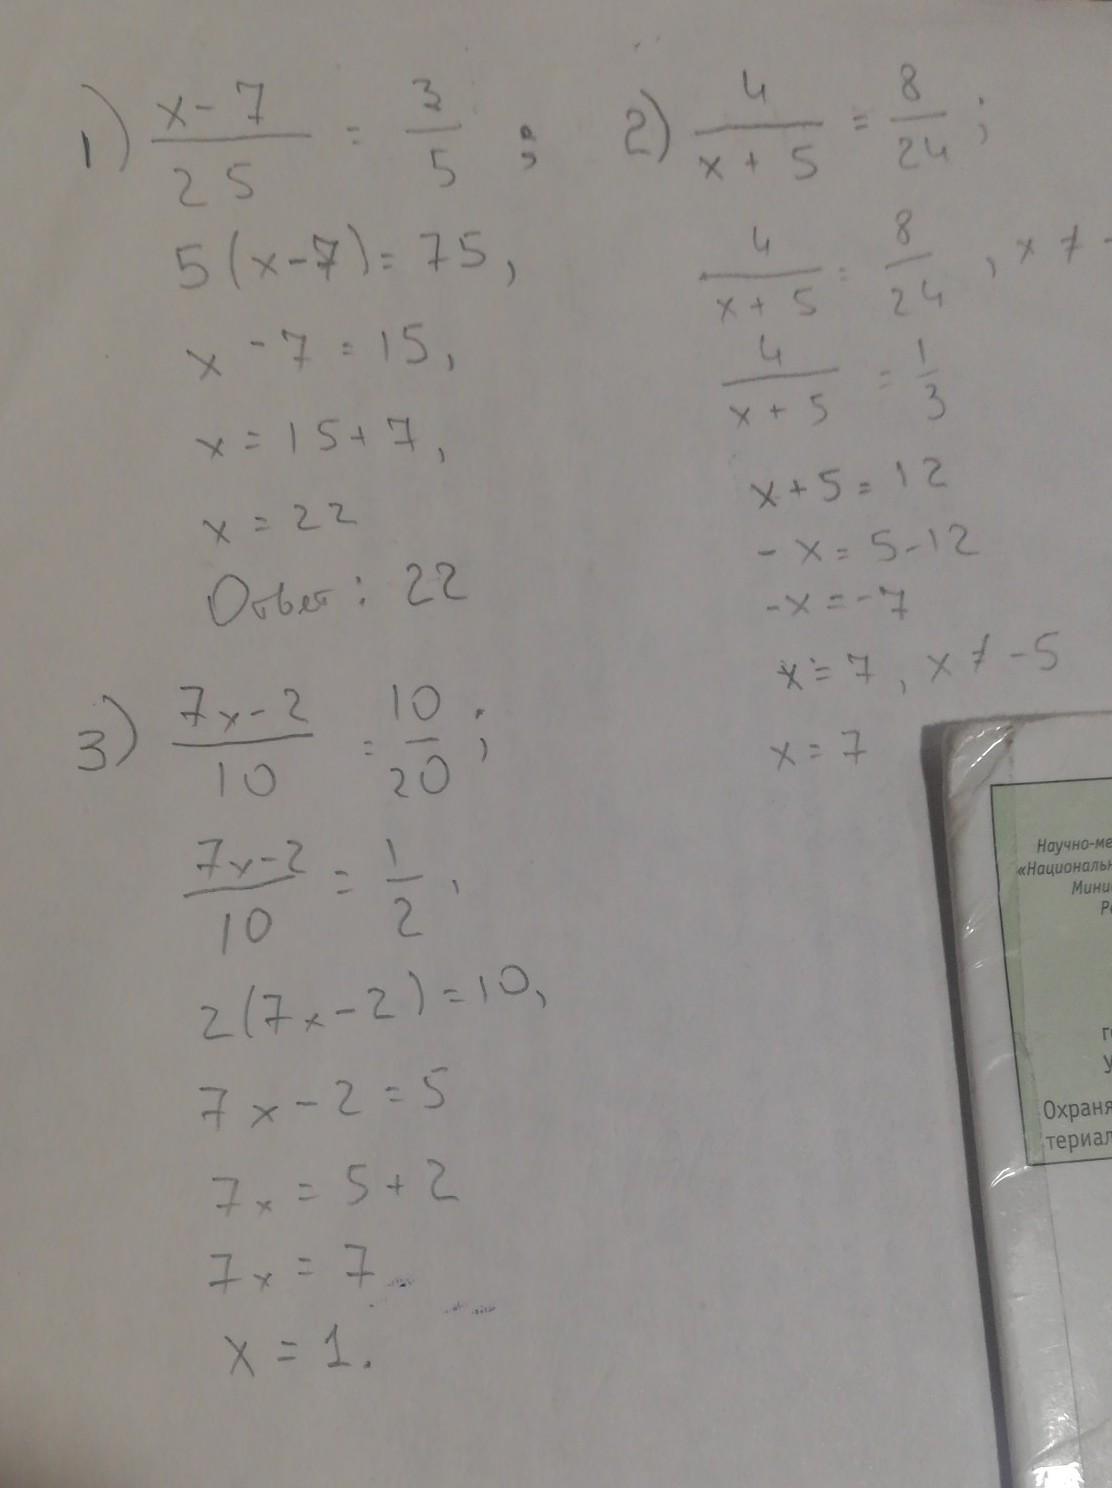 1) (x-7)/25 = 3/5 ;
5(x-7) = 75,
x - 7 = 15,
x = 15 + 7,
x = 22
Ответ: 22
2) 4/(x+5) = 8/24 ;
4/(x+5) = 8/24 , x ≠ -
4/(x+5) = 1/3
x+5 = 12
-x = 5-12
-x = -7
x = 7 , x ≠ -5
x = 7
3) (7x-2)/10 = 10/20 ;
(7x-2)/10 = 1/2 ,
2(7x-2) = 10,
7x - 2 = 5
7x = 5 + 2
7x = 7
x = 1.
Научно-ме
«Националь
Мини
Р
г
У
Охраня
териал